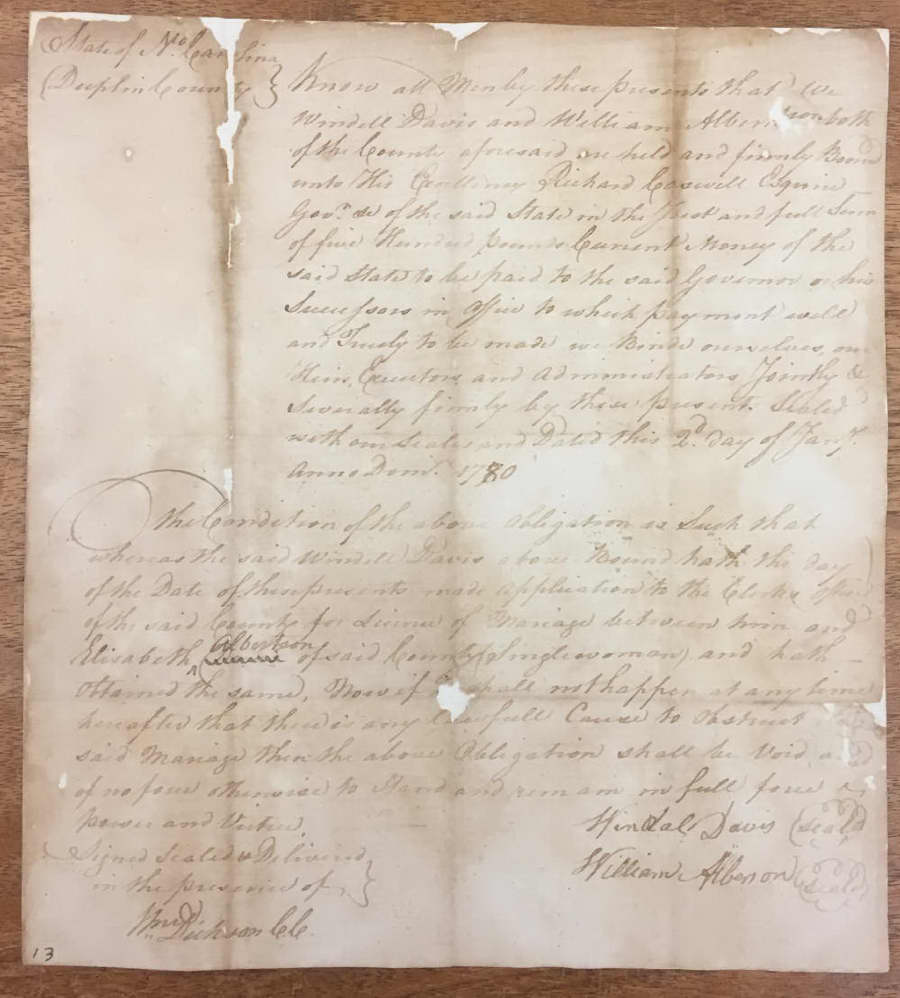 State of No. Carolina
Duplin County
Know all Men by these presents that We
Windell Davis and William Albertson both
of the County aforesaid are held and firmly Bound
unto His Excellency Richard Caswell Esquire
Govr. &c of the said State in the Just and full Sum
of five Hundred pounds Current Money of the
said State to be paid to the said Governor or his
Successors in Office to which payment well
and Truely to be made we Binde ourselves, our
Heirs, Executors, and Administrators, Jointly &
Severally firmly by these present. Sealed
with our Seales and Dated this 2d. day of Jany.
Anno Dom. 1780
The Condition of the above Obligation is Such that
whereas the said Windell Davis above Bound hath this day
of the Date of these presents made application to the Clerks Office
of the said County for Licence of Mariage between him and
Elisabeth Albertson of said County (Singlewoman) and hath
Obtained the same, Now if it shall not happen at any time
hereafter that there is any Lawfull Cause to Obstruct
said Mariage then the above Obligation shall be Void, and
of no force otherwise to Stand and remain in full force
Power and Virtue
Windal Davis (Seald
Signed Sealed & Delivered
William Alberson (Seald
in the presence of,
Wm. Dickson CC.
13